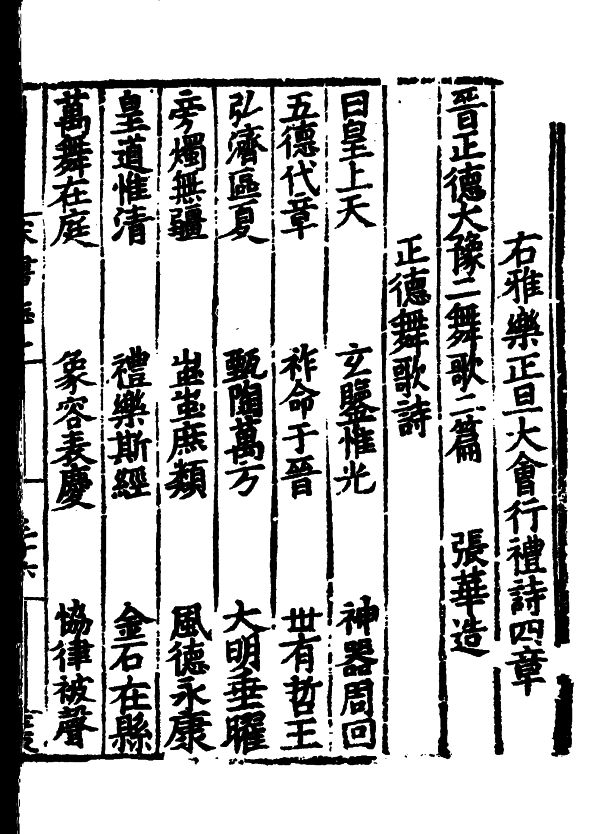 右雅樂正旦大會行禮詩四章
晉正德大豫二舞歌二篇　張華造
正德舞歌詩
曰皇上天　玄鑒惟光　神器周回
五德代章　祚命于晉　世有哲王
弘濟區夏　甄陶萬方　大明垂曜
旁燭無疆　蚩蚩庶類　風德永康
皇道惟清　禮樂斯經　金石在縣
萬舞在庭　象容表慶　協律被聲